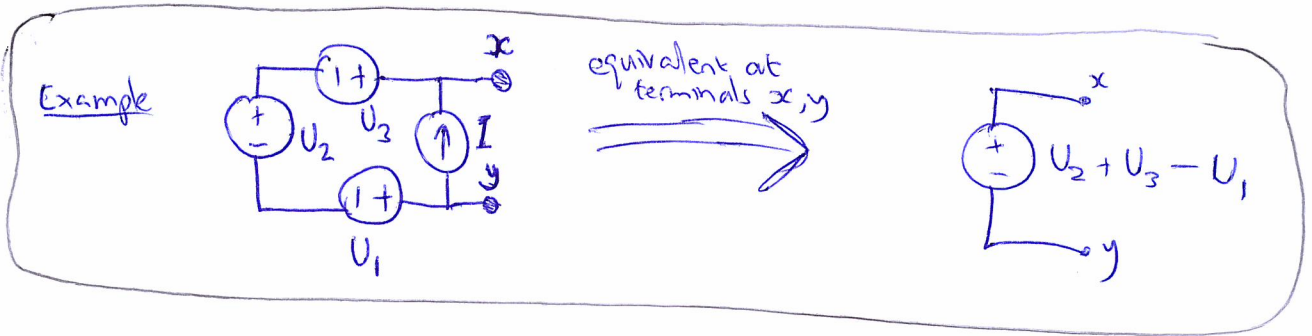 Example
x
U3
+
-
U2
I
y
U1
equivalent at
terminals x,y
x
+
-
U2 + U3 - U1
y